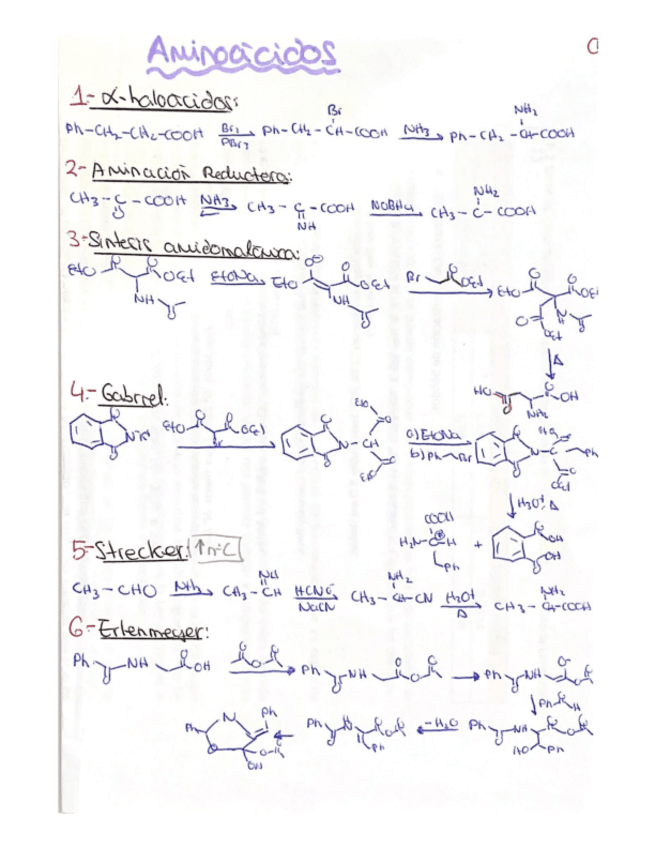 Aminoácidos
1- α-haloácidos:
Ph-CH2-CH2-COOH Br2 PBr3 Ph-CH2-CH-COOH Br NH3 Ph-CH2-CH-COOH NH2
2- Aminación Reductora:
CH3-C-COOH O NH3 CH3-C-COOH NH NaBH4 CH3-C-COOH NH2
3- Síntesis amidomalónica:
EtO O O OEt NH O EtONa EtO O OEt NH O Br O OEt EtO O O OEt N H O OEt
Δ
HO O OH NH2
4.- Gabriel:
O N-K+ O EtO O O OEt Br O N-CH O EtO O EtO O a) EtONa b) Ph Br O N-C O EtO O Ph O OEt
H3O+, Δ
COOH H2N-C-H Ph + O OH OH O
5- Strecker: ↑nºC
CH3-CHO NH3 CH3-CH NH HCN NaCN CH3-CH-CN NH2 H3O+ Δ CH3-CH-COOH NH2
6- Erlenmeyer:
Ph NH OH O O O Ph NH O O Ph NH O-
Ph H
Ph N Ph O OH Ph N Ph O -H2O Ph NH HO Ph